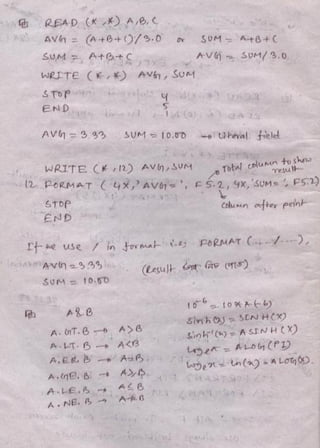 READ (*,*) A,B,C
AVG = (A+B+C)/3.0 or SUM = A+B+C
SUM = A+B+C AVG = SUM/3.0
WRITE (*,*) AVG, SUM
STOP
END
AVG = 3.33 SUM = 10.00 → literal field
WRITE (*,12) AVG, SUM
Total column to show result
12 FORMAT (4X,'AVG=', F5.2, 4X, 'SUM=', F5.2)
STOP
END
Column after point
If we use / in format i.e; FORMAT (.../...),
AVG = 3.33 (Result
SUM = 10.00
A & B
A.GT.B → A>B
A.LT.B → A<B
A.EQ.B → A=B
A.GE.B → A≥B
A.LE.B → A≤B
A.NE.B → A≠B
10^-6 = 10**(-6)
Sinh(x) = SINH(X)
Sinh^-1(x) = ASINH(X)
= ALOG(PI)
= ln(x) = ALOG(X)